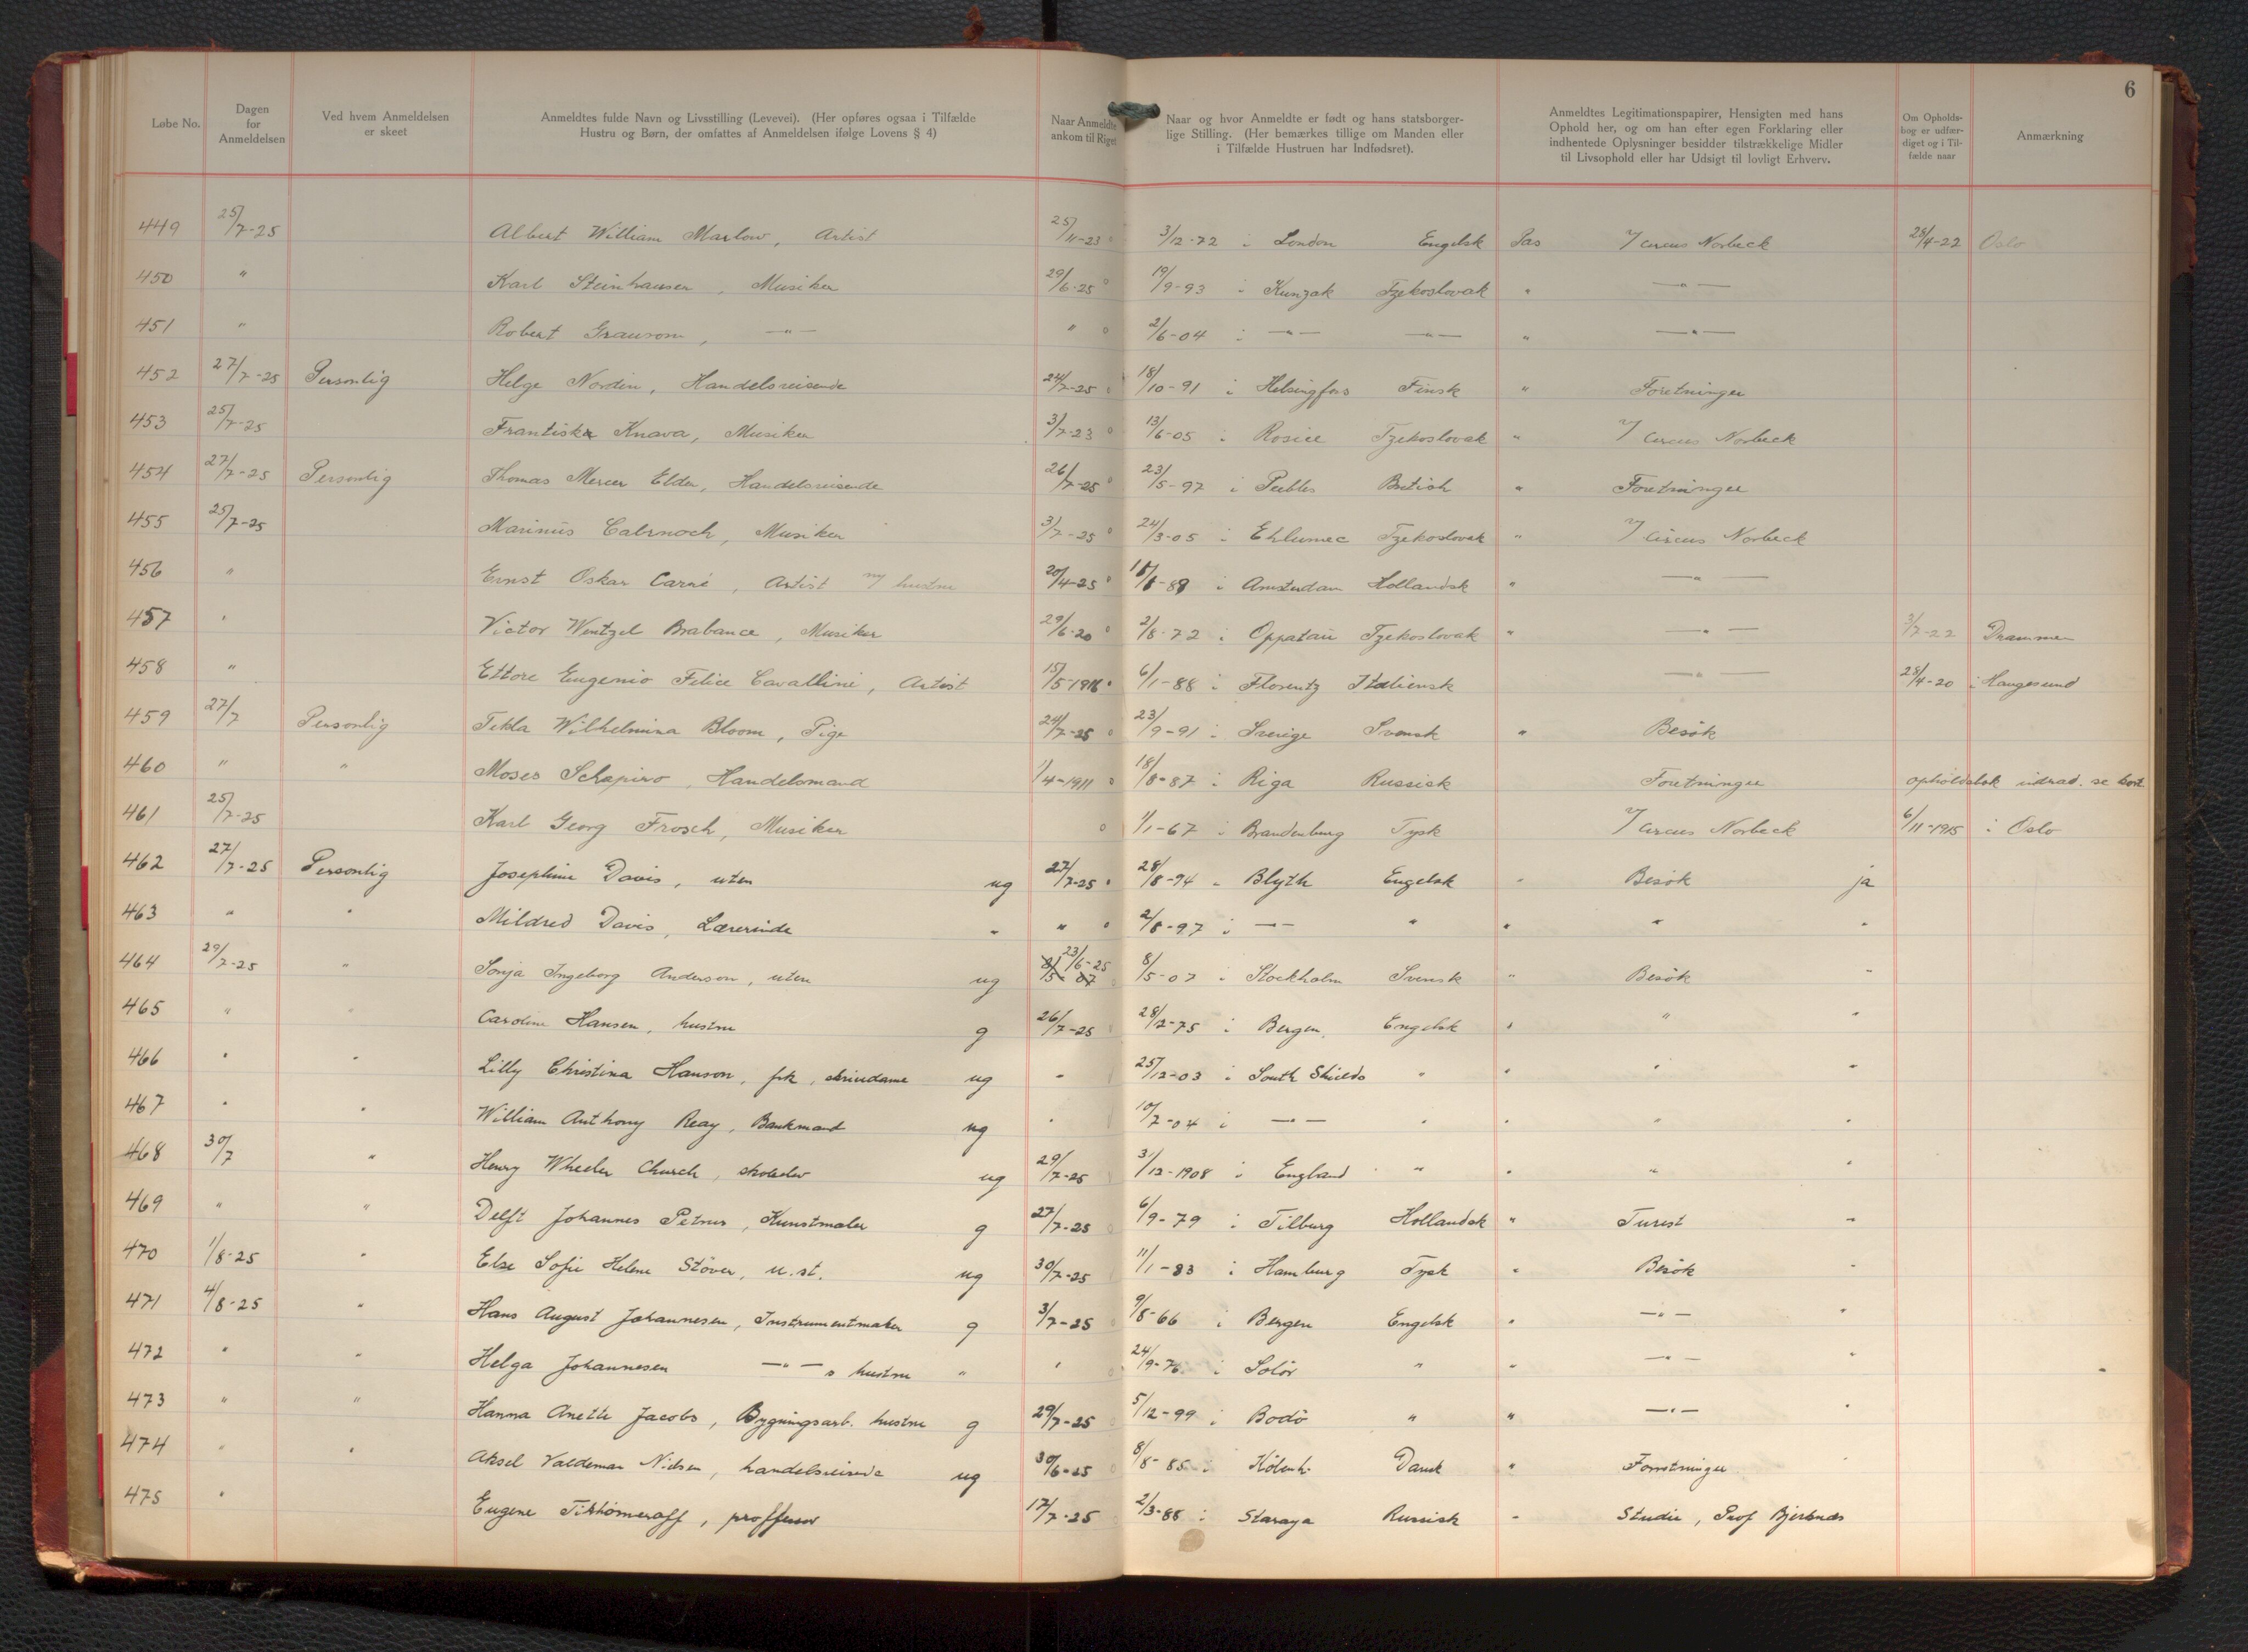 6
Løbe No. | Dagen for Anmeldelsen | Ved hvem Anmeldelsen er skeet | Anmeldtes fulde Navn og Livsstilling (Levevei). (Her opføres ogsaa i Tilfælde Hustru og Børn, der omfattes af Anmeldelsen ifølge Lovens § 4) | Naar Anmeldte ankom til Riget | Naar og hvor Anmeldte er født og hans statsborgerlige Stilling. (Her bemærkes tillige om Manden eller i Tilfælde Hustruen har Indfødsret). | Anmeldtes Legitimationspapirer, Hensigten med hans Ophold her, og om han efter egen Forklaring eller indhentede Oplysninger besidder tilstrækkelige Midler til Livsophold eller har Udsigt til lovligt Erhverv. | Om Opholdsbog er udfærdiget og i Tilfælde naar | Anmærkning
449 25/7-25 Albert William Marlow, Artist 25/11-23 3/12-72 i London Engelsk Pas Circus Norbeck 25/4-22 Oslo
450 " Karl Steinhauser, Musiker 29/6-25 19/9-93 i Kunzak Tzekoslovak " —"—
451 " Robert Grausom, —"— " 2/6-04 i —"— —"— " —"—
452 27/7-25 Personlig Helge Nordin, Handelsreisende 24/7-25 18/10-91 i Helsingfors Finsk " Foretninger
453 25/7-25 Frantiska Knava, Musiker 3/7-23 13/6-05 i Rosice Tzekoslovak " Circus Norbeck
454 27/7-25 Personlig Thomas Mercer Elder, Handelsreisende 26/7-25 23/5-97 i Peebles British " Foretninger
455 25/7-25 Marinus Cabrnoch, Musiker 3/7-25 24/3-05 i Ehlumec Tzekoslovak " Circus Norbeck
456 " Ernst Oskar Carré, Artist m/ hustru 20/4-25 i Amsterdam Hollandsk " —"—
457 " Victor Wentzel Brabance, Musiker 29/6-20 2/8-72 i Oppatau Tzekoslovak " —"— 3/7-22 Drammen
458 " Ettore Eugenio Felice Cavallini, Artist 15/5-1916 6/1-88 i Florentz Italiensk —"— 28/4-20 i Haugesund
459 27/7 Personlig Tekla Wilhelmina Bloom, Pige 24/7-25 23/9-91 i Sverige Svensk " Besøk
460 " " Moses Schapiro, Handelsmand 1/4-1911 18/8-87 i Riga Russisk Foretninger opholdsbok se kort
461 25/7-25 Karl Georg Frosch, Musiker 1/1-67 i Brandenburg Tysk Circus Norbeck 6/11-1915 i Oslo
462 27/7-25 Personlig Josephine Davis, uten ug 27/7-25 28/8-94 " Blyth Engelsk " Besøk ja
463 " " Mildred Davis, Lærerinde " " 2/8-97 i —"— " " " "
464 29/7-25 " Sonja Ingeborg Anderson, uten ug 8/5-07 23/6-25 8/5-07 i Stockholm Svensk " Besøk "
465 " " Caroline Hansen, hustru g 26/7-25 28/2-75 i Bergen Engelsk " " "
466 " " Lilly Christina Hanson, frk, ug " 25/12-03 i South Shields " " " "
467 " " William Anthony Reay, Bankmand ug " 10/7-04 i —"— " " " "
468 30/7 " Henry Wheeler Church, skoleelev ug 29/7-25 3/12-1908 i England " " " "
469 " " Delft Johannes Petrus, Kunstmaler g 27/7-25 6/9-79 i Tilburg Hollandsk " Turist "
470 1/8-25 " Else Sofie Helene Stöver, u.st. ug 30/7-25 11/1-83 i Hamburg Tysk " Besøk "
471 4/8-25 " Hans August Johannesen, Instrumentmaker g 3/7-25 9/8-66 i Bergen Engelsk " —"— "
472 " " Helga Johannesen —"— s hustru " " 24/9-76 i Solör " " —"— "
473 " " Hanna Anette Jacobs, Bygningsarb. hustru g 29/7-25 5/12-99 i Bodö " " —"— "
474 " " Aksel Valdemar Nielsen, handelsreisende ug 30/6-25 8/8-85 i Köbenh. Dansk " Forretninger "
475 " Eugene Tikhomeroff, proffesor 17/7-25 2/3-88 i Staraya Russisk " Studie, Prof Bjerknæs